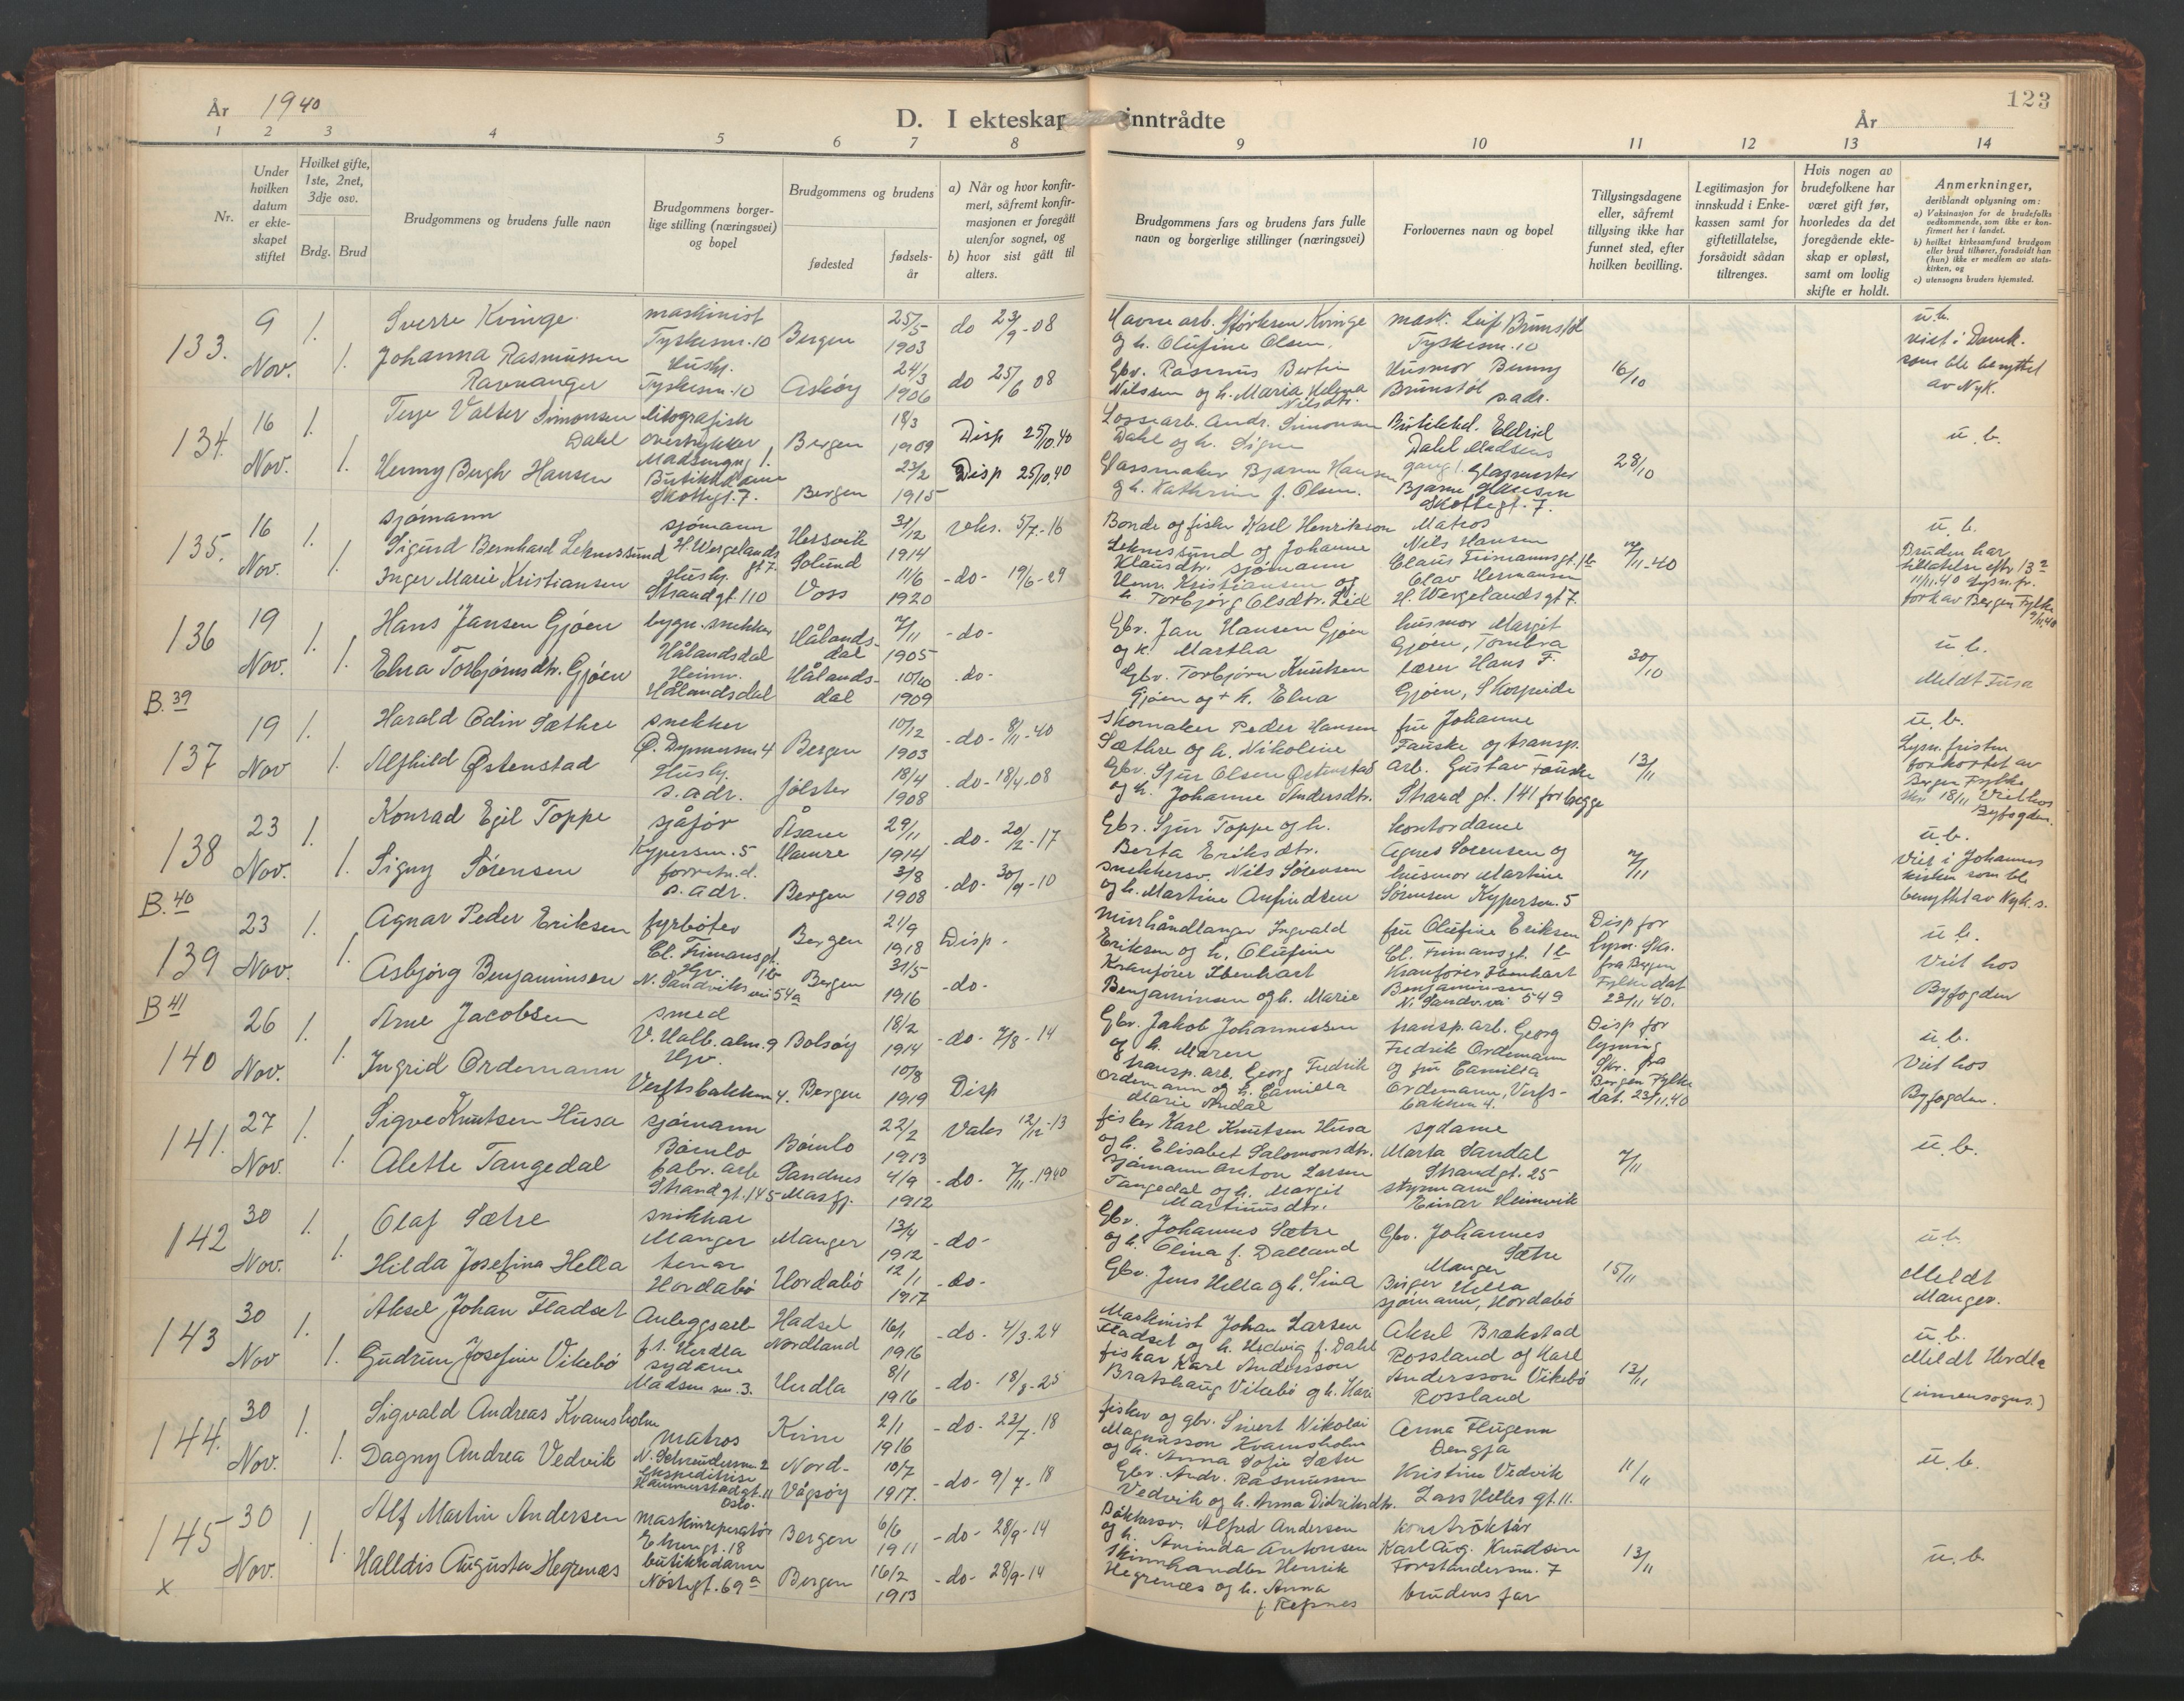 År 1940
D. I ekteskap inntrådte
År
123
1 2 3 4 5 6 7 8 9 10 11 12 13 14
Nr.
Under hvilken datum er ekteskapet stiftet
Hvilket gifte, 1ste, 2net, 3dje osv.
Brdg. Brud
Brudgommens og brudens fulle navn
Brudgommens borgerlige stilling (næringsvei) og bopel
Brudgommens og brudens
fødested
fødselsår
a) Når og hvor konfirmert, såfremt konfirmasjonen er foregått utenfor sognet, og
b) hvor sist gått til alters.
Brudgommens fars og brudens fars fulle navn og borgerlige stillinger (næringsvei)
Forlovernes navn og bopel
Tillysingsdagene eller, såfremt tillysing ikke har funnet sted, efter hvilken bevilling.
Legitimasjon for innskudd i Enkekassen samt for giftetillatelse, forsåvidt sådan tiltrenges.
Hvis nogen av brudefolkene har været gift før, hvorledes da det foregående ekteskap er opløst, samt om lovlig skifte er holdt.
Anmerkninger, deriblandt oplysning om:
a) Vaksinasjon for de brudefolks vedkommende, som ikke er konfirmert her i landet.
b) hvilket kirkesamfund brudgom eller brud tilhører, forsåvidt han (hun) ikke er medlem av statskirken, og
c) utensogns bruders hjemsted.
133. 9 Nov. 1. 1.
Sverre Kvinge
maskinist Tyskesm. 10
Bergen
25/5 1903
do 23/9-08
Havnearb. Størksen Kvinge og h. Olufine Olsen.
mask. Leif Brunstøl Tyskesm. 10
Johanna Rasmussen Ravnanger
Husb. Tyskesm. 10
Askøy
24/3 1906
do 25/6 08
Gbr. Rasmus Bertin Nilssen og h. Maria Helena Nilsdtr.
Husmor Benny Brunstøl s.adr.
16/10
u.b. viet i Domk. som ble benyttet av Nyk.
134. 16 Nov. 1. 1.
Terje Valter Simonsen Dahl
litografisk overtrykker Madsensg. 1.
Bergen
18/3 1909
Disp 25/10.40
Lossearb. Andr. Simonsen Dahl og h. Signe
Butikkd. Eldrid Dahl Madsensgang 1.
Henny Bergh Hansen
Butikkdame Skottegt. 7.
Bergen
23/2 1915
Disp 25/10.40
Glassmaker Bjarne Hansen og h. Kathrine f. Olsen.
Glasmester Bjarne Hansen Skottegt. 7.
28/10
u.b.
135. 16 Nov. 1. 1.
sjømann
Sigurd Bernhard Leknessund
sjømann H. Wergelands gt 7.
Hersvik Solund
31/12 1914
vks. 5/7-16
Bonde og fisker Karl Henrikson Leknessund og Johanne Klausdtr.
Matros Nils Hansen Claus Frimannsgt. 1b
Inger Marie Kristiansen
Husb. Strandgt. 110
Voss
11/6 1920
-do- 19/6-29
sjømann Henr. Kristiansen og h. Torbjørg Olsdtr. Lid
Olav Hermansen H. Wergelandsgt 7.
11-40
u.b. Bruden har tillatelse eftr. 13 2 11/11.40 Lysn.fr. fork av Bergen Fylke 9/11.40
136 19 Nov. 1. 1.
Hans Jansen Gjøen
bygn. snekker Hålandsdal
Hålandsdal
7/11 1905
-do-
Gbr. Jan Hansen Gjøen og k. Martha
husmor Margit Gjøen, Tombra
Elna Torbjørnsdtr. Gjøen
Heimv. Hålandsdal
Hålandsdal
10/10 1909
-do-
Gbr. Torbjørn Knutsen Gjøen og + h. Elna
lærer Hans F. Gjøen, Skorpeide
30/10
u.b. Meldt Fusa
B. 39
137 19 Nov 1. 1.
Harald Odin Sæthre
snekker Ø. Dyvnersm 4
Bergen
10/12 1903
-do- 8/11-40
Skomaker Peder Hansen Sæthre og h. Nikoline
fru Johanne Fauske og transp. arb. Gustav Fauske Strand gt. 141 for begge
Alfhild Østenstad
Husb. s.adr.
Jølster
18/4 1908
-do- 18/4-08
Gbr. Sjur Olsen Østenstad og h. Johanne Andersdtr.
13/11
u.b. Lysn.fristen forkortet av Bergen Fylke skr 18/11 Viet hos Byfogden.
138 23 Nov. 1. 1.
Konrad Egil Toppe
sjåfør Kypersm. 5
Åsane Hamre
29/11 1914
-do- 20/2-17
Gbr. Sjur Toppe og h. Berta Eriksdtr.
kontordame Agnes Sørensen og husmor Martine Sørensen Kypersm. 5
Signy Sørensen
forretn.d. s.adr.
Bergen
3/8 1908
-do- 30/9-10
snekkersv. Nils Sørensen og h. Martine Anfindsen
u.b. Viet i Johannes kirken som ble benyttet av Nyk.s.
B. 40
139 23 Nov. 1. 1.
Agnar Peder Eriksen
fyrbøter Cl. Frimansgt. 1b
Bergen
21/9 1918
Disp.
Murhåndlanger Ingvald Eriksen og h. Olufine
fru Olufine Eriksen Cl. Frimansgt. 1b
Disp for lysn. Skr. fra Bergen Fylke dat 23/11 40.
Asbjørg Benjaminsen
Hv. N. Sandviksvei 54a
Bergen
31/5 1916
-do-
Kranfører Ebenhart Benjaminsen og h. Marie
Kranfører Ebenhart Benjaminsen N. Sandv.vei 54a
u.b. Viet hos Byfogden
B 41
140 26 Nov. 1. 1.
Arne Jacobsen
smed V. Halb.alm. 9
Bolsøy
18/2 1914
-do- 7/8-14
Gbr. Jakob Johannessen og h. Maren
transp.arb. Georg Fredrik Ordemann og fru Camilla Ordemann, Verfsbakken 4.
Ingrid Ordemann
Hjv. Verftsbakken 4.
Bergen
10/8 1919
Disp
transp. arb. Georg Fredrik Ordemann og h. Camilla Marie Andal
Disp for lysning Skr. fra Bergen Fylke dat. 23/11.40
u.b. Viet hos Byfogden.
141. 27 Nov. 1. 1.
Sigve Knutsen Husa
sjømann Bømlo
Bømlo
22/2 1913
Vaks 12/12-13
fisker Karl Knutsen Husa og h. Elisabet Salomonsdtr.
sydame Marta Sandal Strandgt. 25
Alette Tangedal
fabr. arb Strandgt. 145
Sandnes Masfj.
4/9 1912
-do- 7/11-1940
Sjømann Anton Larsen Tangedal og h. Margit Martinusdtr.
styrmann Einar Heimvik
7/11
u.b.
142 30 Nov. 1. 1.
Olaf Sætre
snikkar Manger
Manger
13/4 1912
-do-
Gbr. Johannes Sætre og h. Olina f. Dalland
Gbr. Johannes Sætre Manger
Hilda Josefina Hella
tenar Hordabø
Hordabø
12/1 1917
-do-
Gbr. Jens Hella og h. Sina
Birger Hella sjømann, Hordabø
15/11
u.b. Meldt Manger.
143 30 Nov 1. 1.
Aksel Johan Fladset
Anleggsarb f.t. Herdla
Hadsel Nordland
16/1 1916
-do- 4/3.24
Maskinist Johan Larsen Fladset og h. Hedvig f. Dahl
Aksel Brækstad Rossland og Karl Andersson Vikebø Rossland
Gudrun Josefine Vikebø
sydame Madsen sm. 3.
Herdla
8/1 1916
-do- 18/8-25
fiskar Karl Andersson Bratshaug Vikebø og h. Kari
13/11
u.b. Meldt Herdla (innensogns.)
144. 30 Nov. 1. 1.
Sigvald Andreas Kvamsholm
matros N. Schreudersm 2
Kinn
2/1 1916
-do- 22/7.18
fisker og gbr. Sivert Nikolai Magnusson Kvamsholm og h. Anna Sofie Sætre
Anna Flugenn Dengja
Dagny Andrea Vedvik
Ekspeditrise Hammerstadgt. 11 Oslo.
Nord-Vågsøy
10/7 1917.
-do- 9/7-18
Gbr. Andr. Rasmussen Vedvik og h. Anna Didriksdtr.
Kristine Vedvik Lars Hilles gt. 11.
11/11
u.b.
145 30 Nov. 1. 1.
x
Alf Martin Andersen
maskinreperatør
Bergen
6/6 1911
-do- 28/9-14
Bøkkersv. Alfred Andersen og h. Aminda Antonsen
konstruktør Karl Aug. Knudsen Forstandersm. 7
Halldis Augusta Hegrenæs
butikkdame Nøstegt. 69a
Bergen
16/2 1913
-do- 28/9-14
Skinnhandler Henrik Hegrenæs og h. Anna f. Refsnes
brudens far
13/11
u.b.